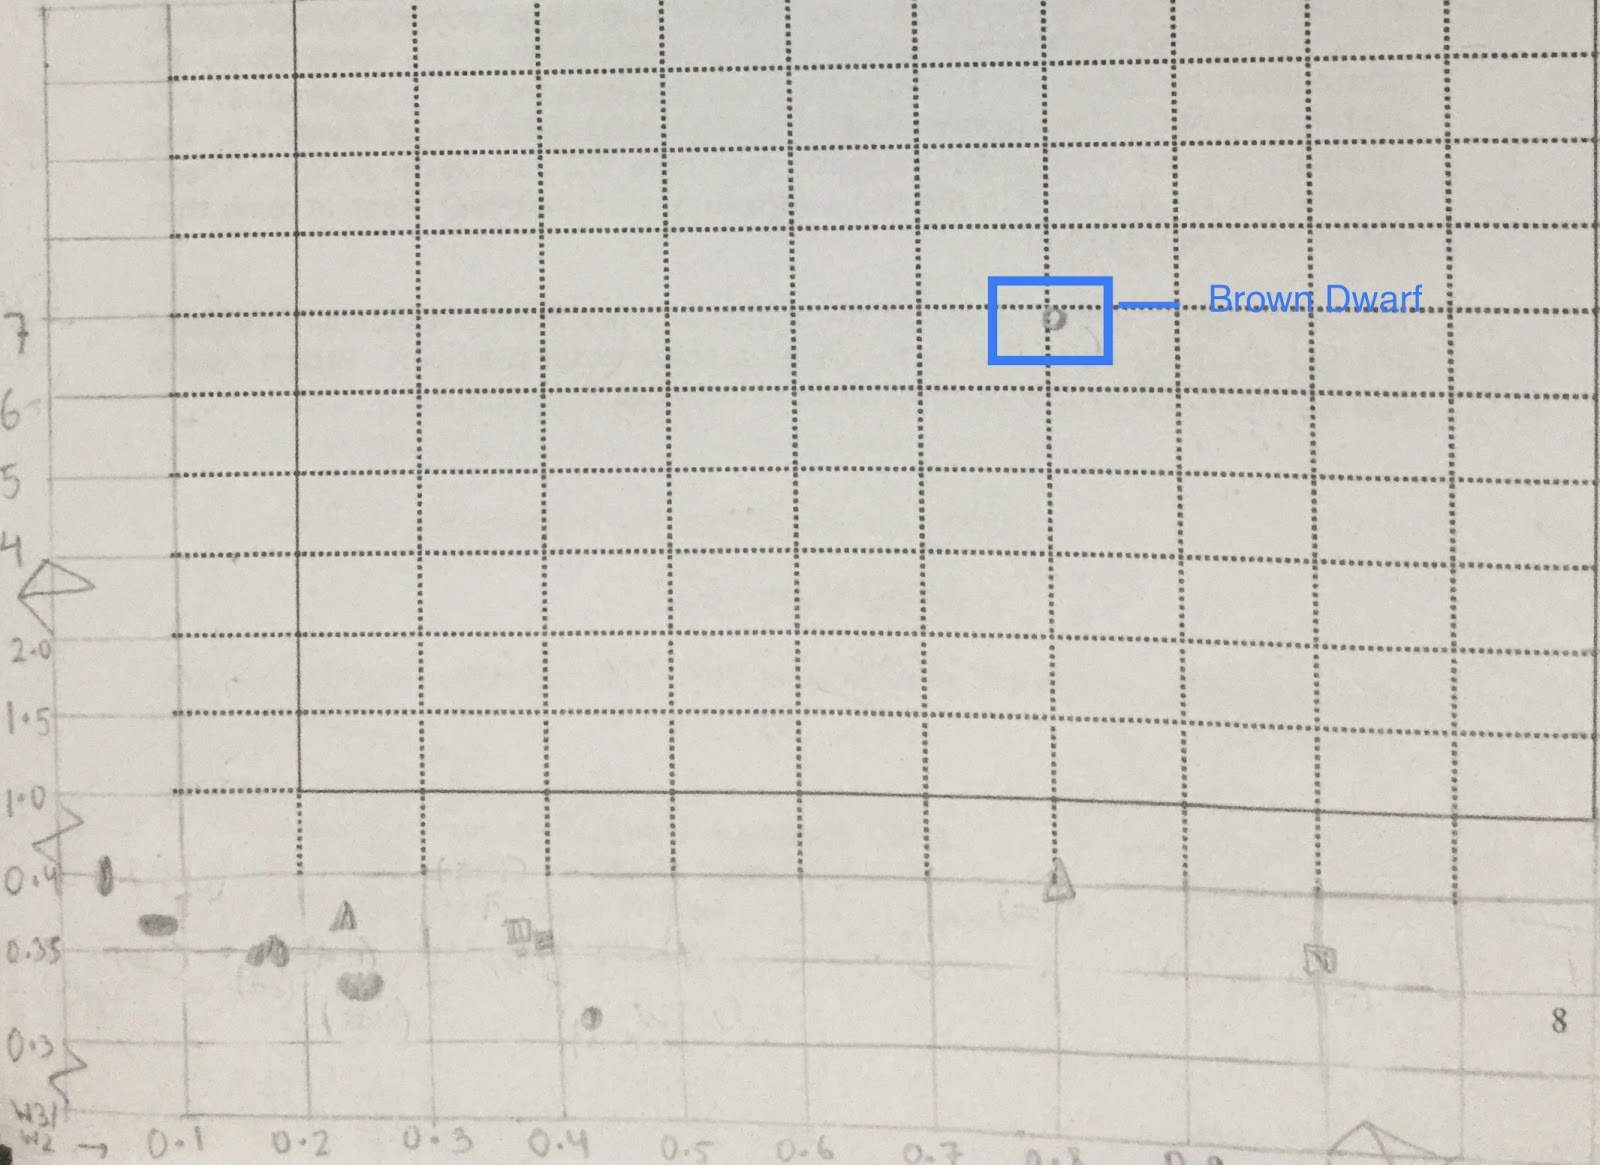 Brown Dwarf
7
6
5
4
2.0
1.5
1.0
0.4
0.35
8
0.3
W3/
W2 → 0.1 0.2 0.3 0.4 0.5 0.6 0.7 0.8 0.9